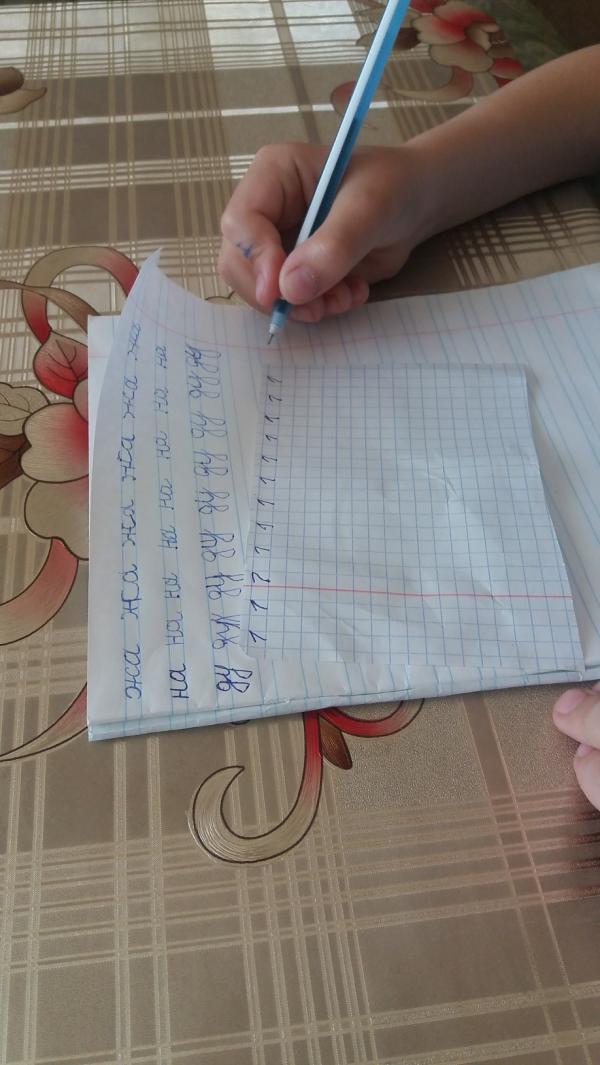 жа жа жа жа жа жа
на на на на на на на на
ду дух ду ду ду ду ду ду ду
1 1 1 1 1 1 1 1 1 1 1 1